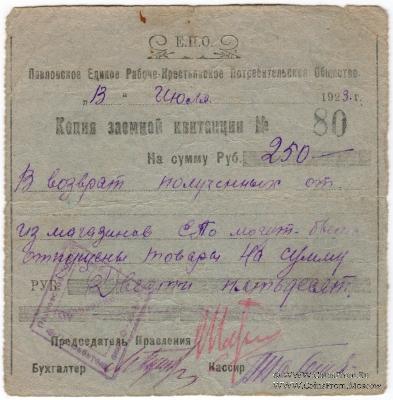 Е.П.О.
Павловское Единое Рабоче-Крестьянское Потребительское Общество
„13" Июля 1923.г.
Копия заемной квитанции № 80
На сумму Руб. 250—
В возврат полученных от
из магазинов ЕПО могут быть
отпущены товары на сумму
РУБ. Двести пятьдесят.
Председатель Правления
Бухгалтер
Кассир
www.CoinsTorg.Ru
www.CoinsTorg.Moscow